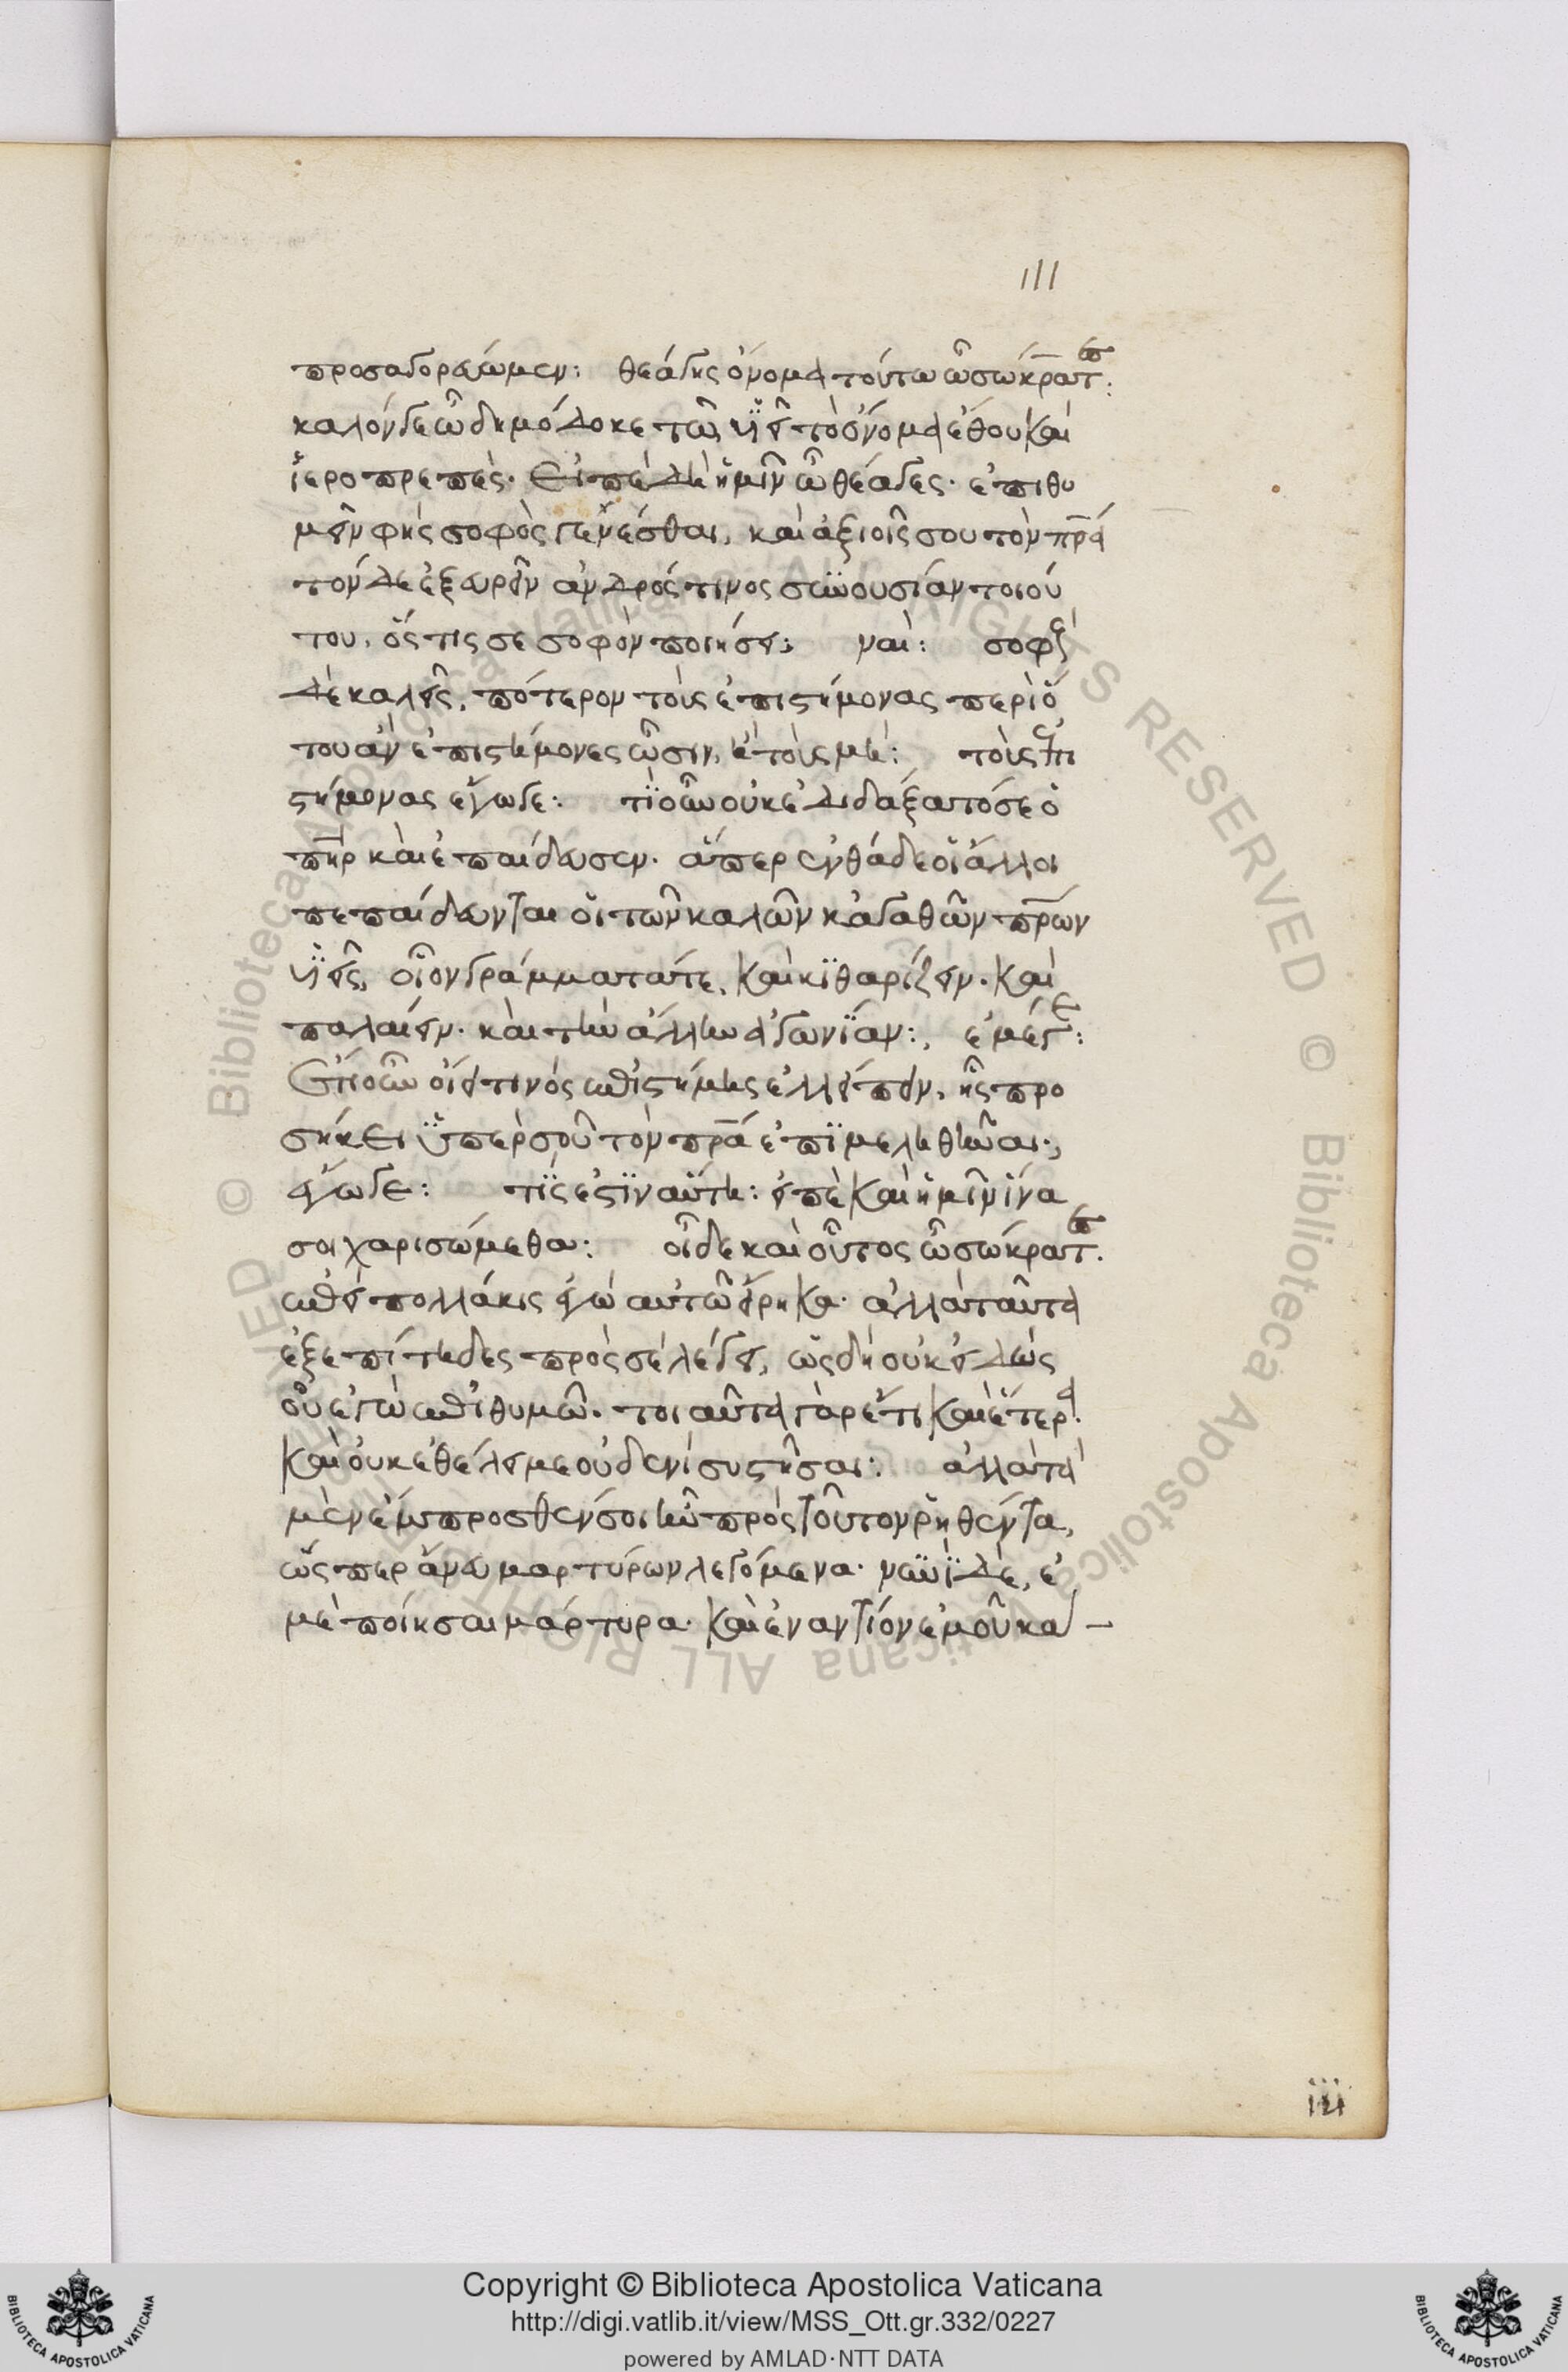 111
προσαγορεύωμεν: θεάγης ὄνομα τούτω ὦ σώκρατες:
καλόν γε ὦ δημόδοκε τῶ ϋἱεῖ τὸ ὄνομα ἔθου καὶ
ἱεροπρεπὲς. εἰπὲ δὴ ἡμῖν ὦ θέαγες. ἐπιθυ
μεῖν φὴς σοφὸς γενέσθαι, καὶ ἀξιοῖς σου τὸν πρα
τόνδε ἐξευρεῖν ἀνδρός τινος συνουσίαν τοιού
του, ὅστις σε σοφὸν ποιήσει: ναὶ: σοφοὺς
δὲ καλεῖς, πότερον τοὺς ἐπιστήμονας περὶ ὅ
του ἂν ἐπιστήμονες ὦσιν, ἢ τοὺς μή: τοὺς ἐπι
στήμονας ἔγωγε: τί οὖν οὐκ ἐδιδάξατό σε ὁ
πηρ καὶ ἐπαίδευσεν. ἅπερ ἐνθάδε οἱ ἄλλοι
πεπαίδευνται οἱ τῶν καλῶν κἀγαθῶν πρων
ϋἱεῖς, οἷον γράμματά τε, καὶ κϊθαρίζειν. καὶ
παλαίειν. καὶ τὴν ἄλλην ἀγωνίαν: ἐμέ γε:
ἔτι οὖν οἴει τινὸς ἐπιστήμης ἐλλείπειν, ἧς προ
σήκει ὑπὲρ σοῦ τὸν πρα ἐπϊμεληθῆναι:
ἔγωγε: τίς ἐστϊν αὕτη: εἰπὲ καὶ ἡμῖν ἵνα
σοι χαρισώμεθα: οἶδε καὶ οὗτος ὦ σώκρατες.
ἐπεὶ πολλάκις ἐγὼ αὐτῶ εἴρηκα. ἀλλὰ ταῦτα
ἐξεπίτηδες πρὸς σὲ λέγει, ὡς δὴ οὐκ εἰδὼς
οὗ ἐγὼ ἐπιθυμῶ. τοιαῦτα γὰρ ἔτι καὶ ἕτερα.
καὶ οὐκ ἐθέλει με οὐδενὶ συστῆσαι: ἀλλὰ τὰ
μὲν ἔμπροσθέν σοι ἦν πρὸς τοῦτον ῥηθέντα,
ὥσπερ ἄνευ μαρτύρων λεγόμενα. νυνῒ δὲ, ἐ
μὲ ποίησαι μάρτυρα. καὶ ἐναντίον ἐμοῦ κα –
iii
Copyright © Biblioteca Apostolica Vaticana
http://digi.vatlib.it/view/MSS_Ott.gr.332/0227
powered by AMLAD·NTT DATA